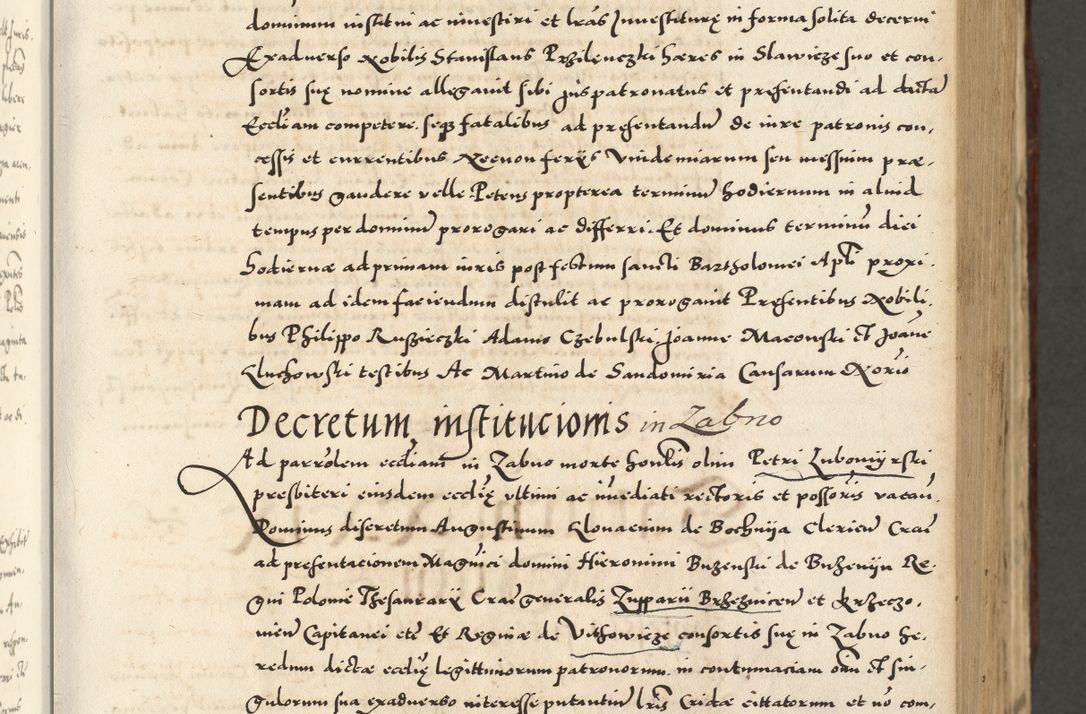 dominum institui ac investiri et lras Investiturę in forma solita decerni
Exadverso Nobilis Stanislaus Przileneczki hæres in Slawicze suo et con,
sortis suę nomine allegavit sibi jus patronatus et presentandi ad dicta
Eccliam competere. seq fatalibus ad presentandu de iure patronis con,
cessis et currentibus Necnon ferijs Vindemiarum seu messium præ,
sentibus gaudere velle. Petens propterea terminu hodiernum in aliud
tempus per dominu prorogari ac differri. Et dominus terminu diei
hodiernæ ad primam iuris post festum sancti Bartholomei Apli proxi,
mam ad idem faciendum distulit ac prorogavit Presentibus Nobili,
bus Philippo Ruszieczki Adamo Czebulski, Joanne Maconski et Joane
Kluchowski testibus Ac Martino de Sandomiria Causarum Norio
Decretum institucionis in Zabno
Ad parrolem eccliam in Zabno morte honlis olim Petri Lubomijrski
presbiteri eiusdem ecclię ultimi ac imediati rectoris et possoris vacan,
Dominus discretum Augustinum Klonacium de Bochnija Clericu Crac
ad presentacionem Magnici domini Hieronimi Buzenski de Buzenijn Re,
gni Polonie Thesaurarij Crac generalis Zupparii Brzeznicen et Krzeczo,
vien Capitanei etc Et Reginæ de Vithowicze consortis suę in Zabno he,
redum dictæ ecclię legittimorum patronorum. in contumaciam oim et sin,
gulorum sua exadverso interesse putantiu lris Cridæ cittatorum et no com,